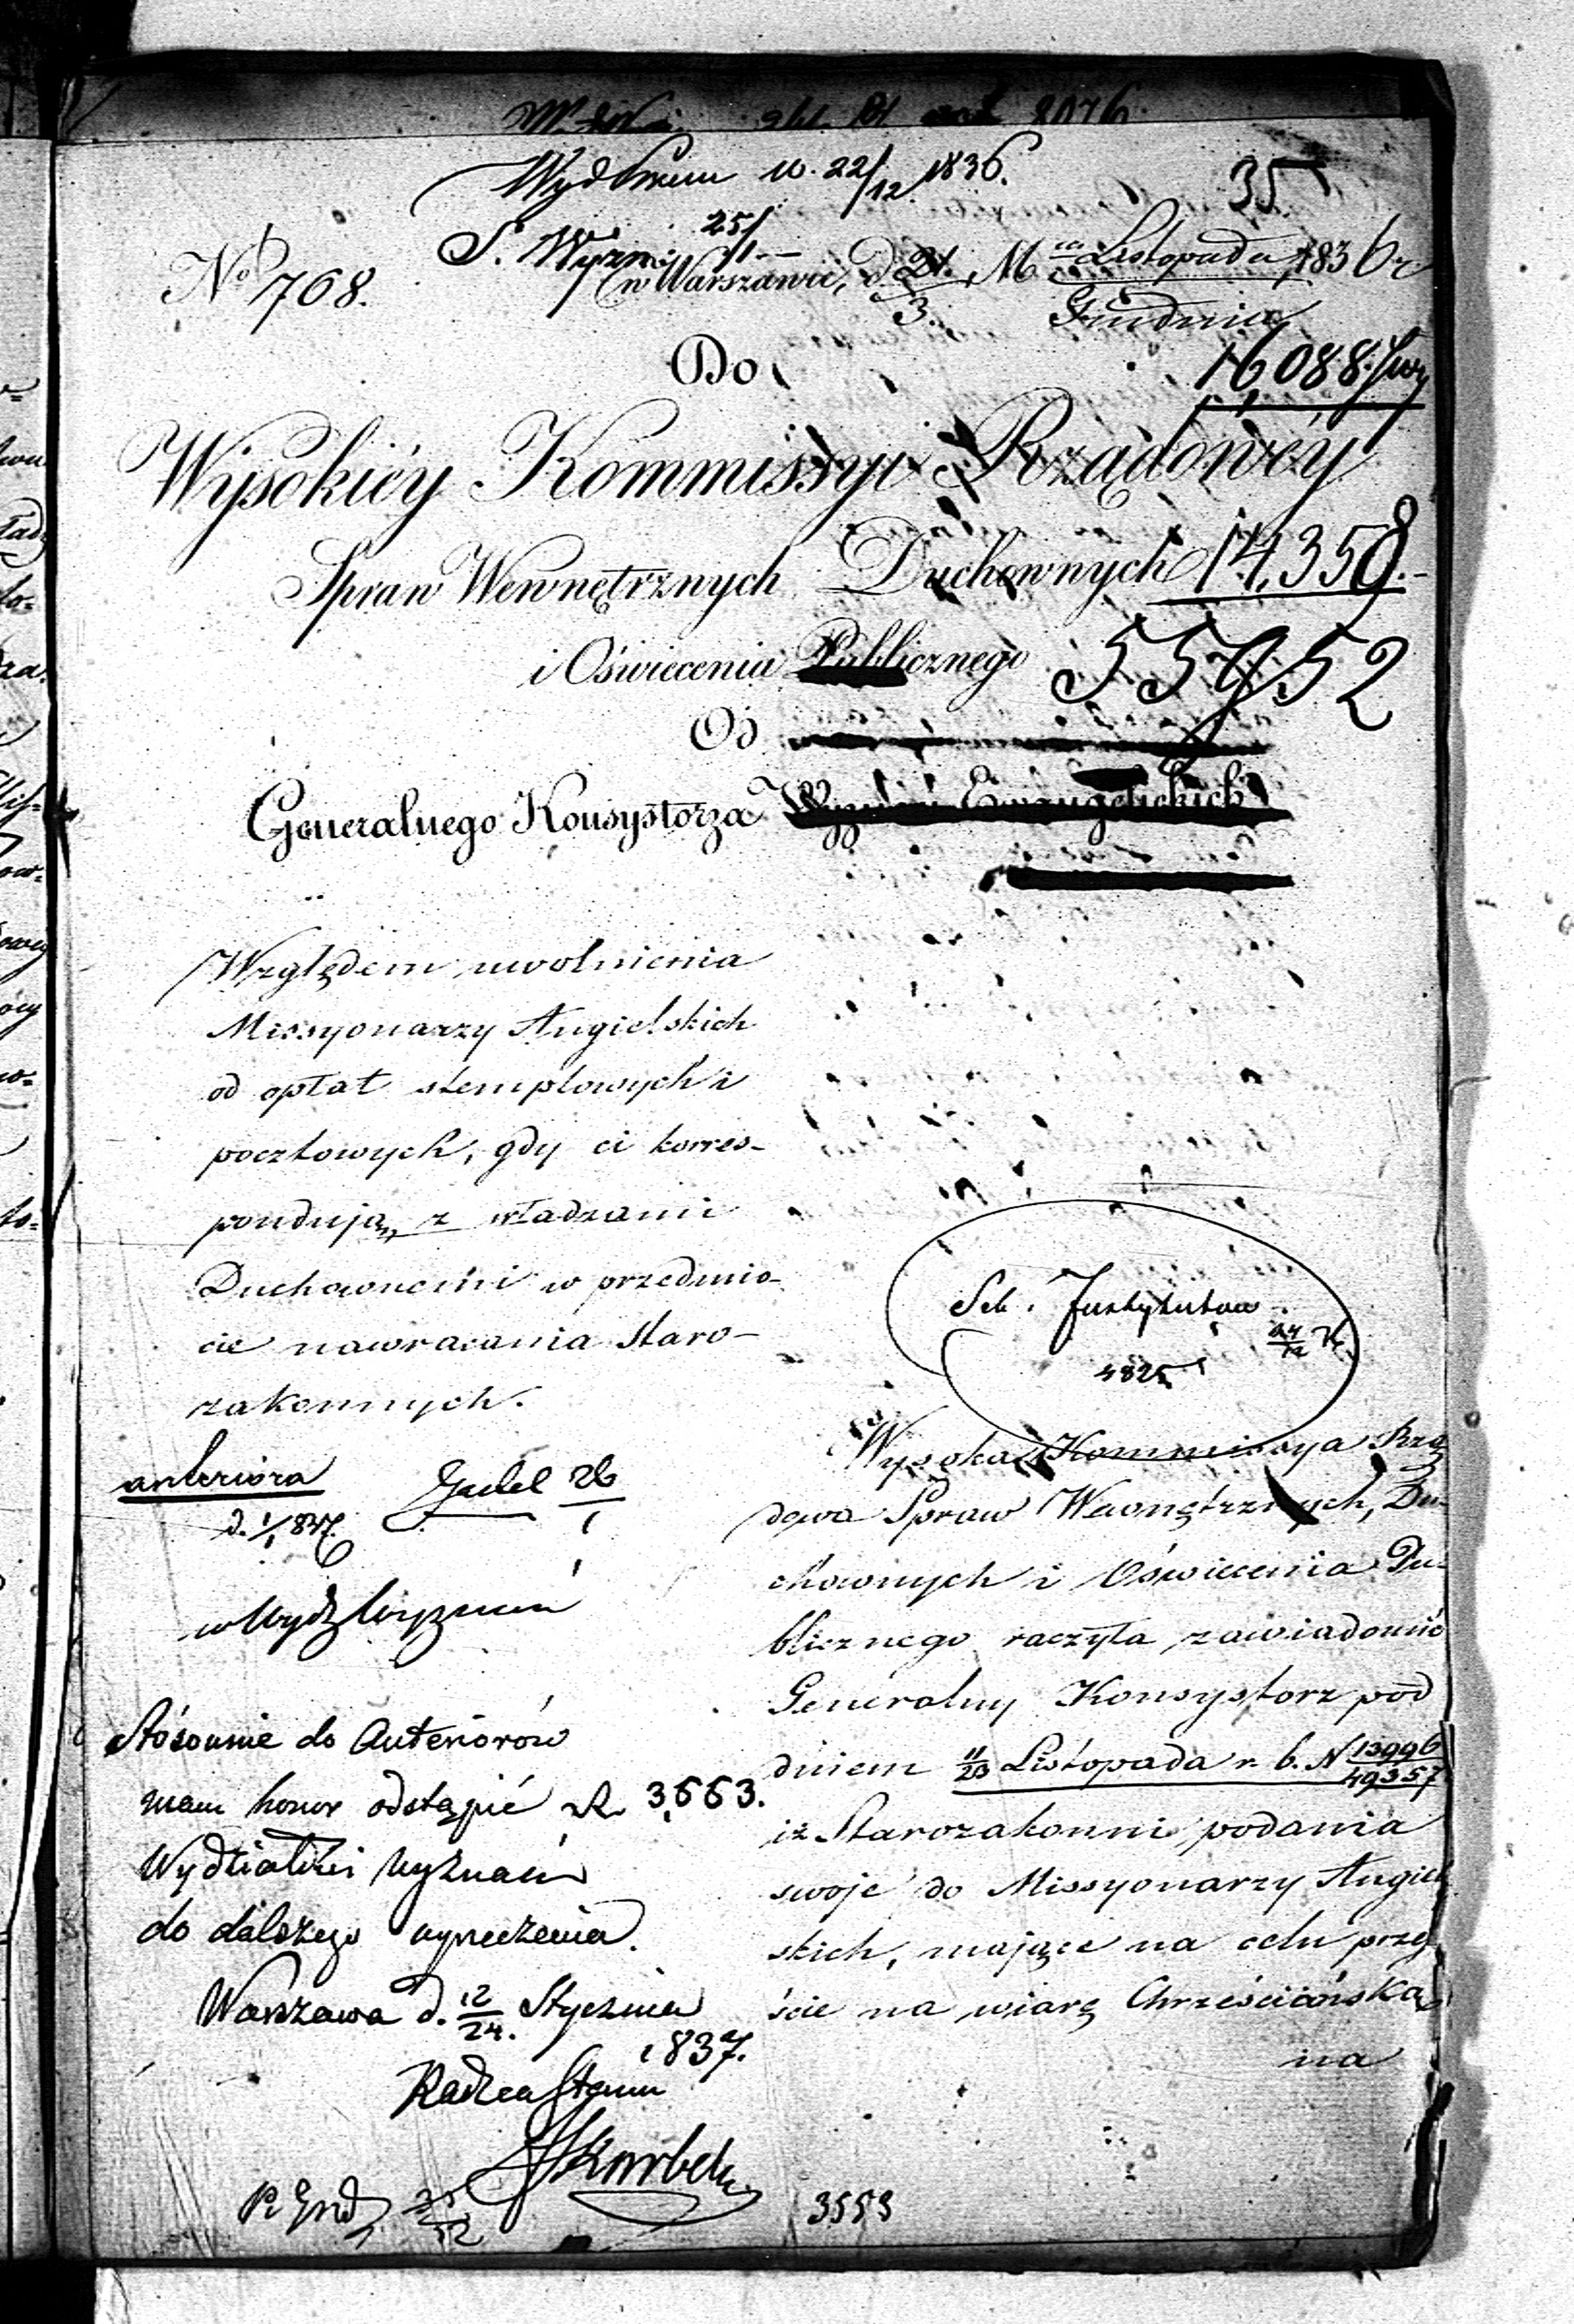 Wydz. 10. 22/12 1836.
35
25/1
S. Wyzn.
No 768.
w Warszawie, d. 21. Mca Listopada 1836 r.
3. Grudnia
Do
16,088.
Wysokiéy Kommissyi Rządowéy
Spraw Wewnętrznych Duchownych
14,358.
i Oświecenia Publicznego
55952
Od
Generalnego Konsystorza Wyznań Ewangelickich
Względem uwolnienia
Missyonarzy Angielskich
od opłat stemplowych i
pocztowych, gdy ci korres-
pondują z władzami
Duchownemi w przedmio-
cie nawracania Staro-
zakonnych.
anteriora
d. 1/1 837.
26/1
w Wydz Wyznań
Stósownie do Anteriorów
mam honor odstąpić 3,553.
Wydziałowi Wyznań
do dalszego wyrzeczenia.
Warszawa d. 12/24. Stycznia
1837.
Radca Stanu
Skarbek
Sek. Instytutów
14/12
4825
Wysoka Kommissya Rzą
dowa Spraw Wewnętrznych, Du-
chownych i Oświecenia Pu-
blicznego raczyła zawiadomić
Generalny Konsystorz pod
dniem 11/23 Listopada r. b. N 13996/49357
iż Starozakonni podania
swoje do Missyonarzy Angiel
skich, mające na celu przej
ście na wiarę Chrześciańską
na
3553